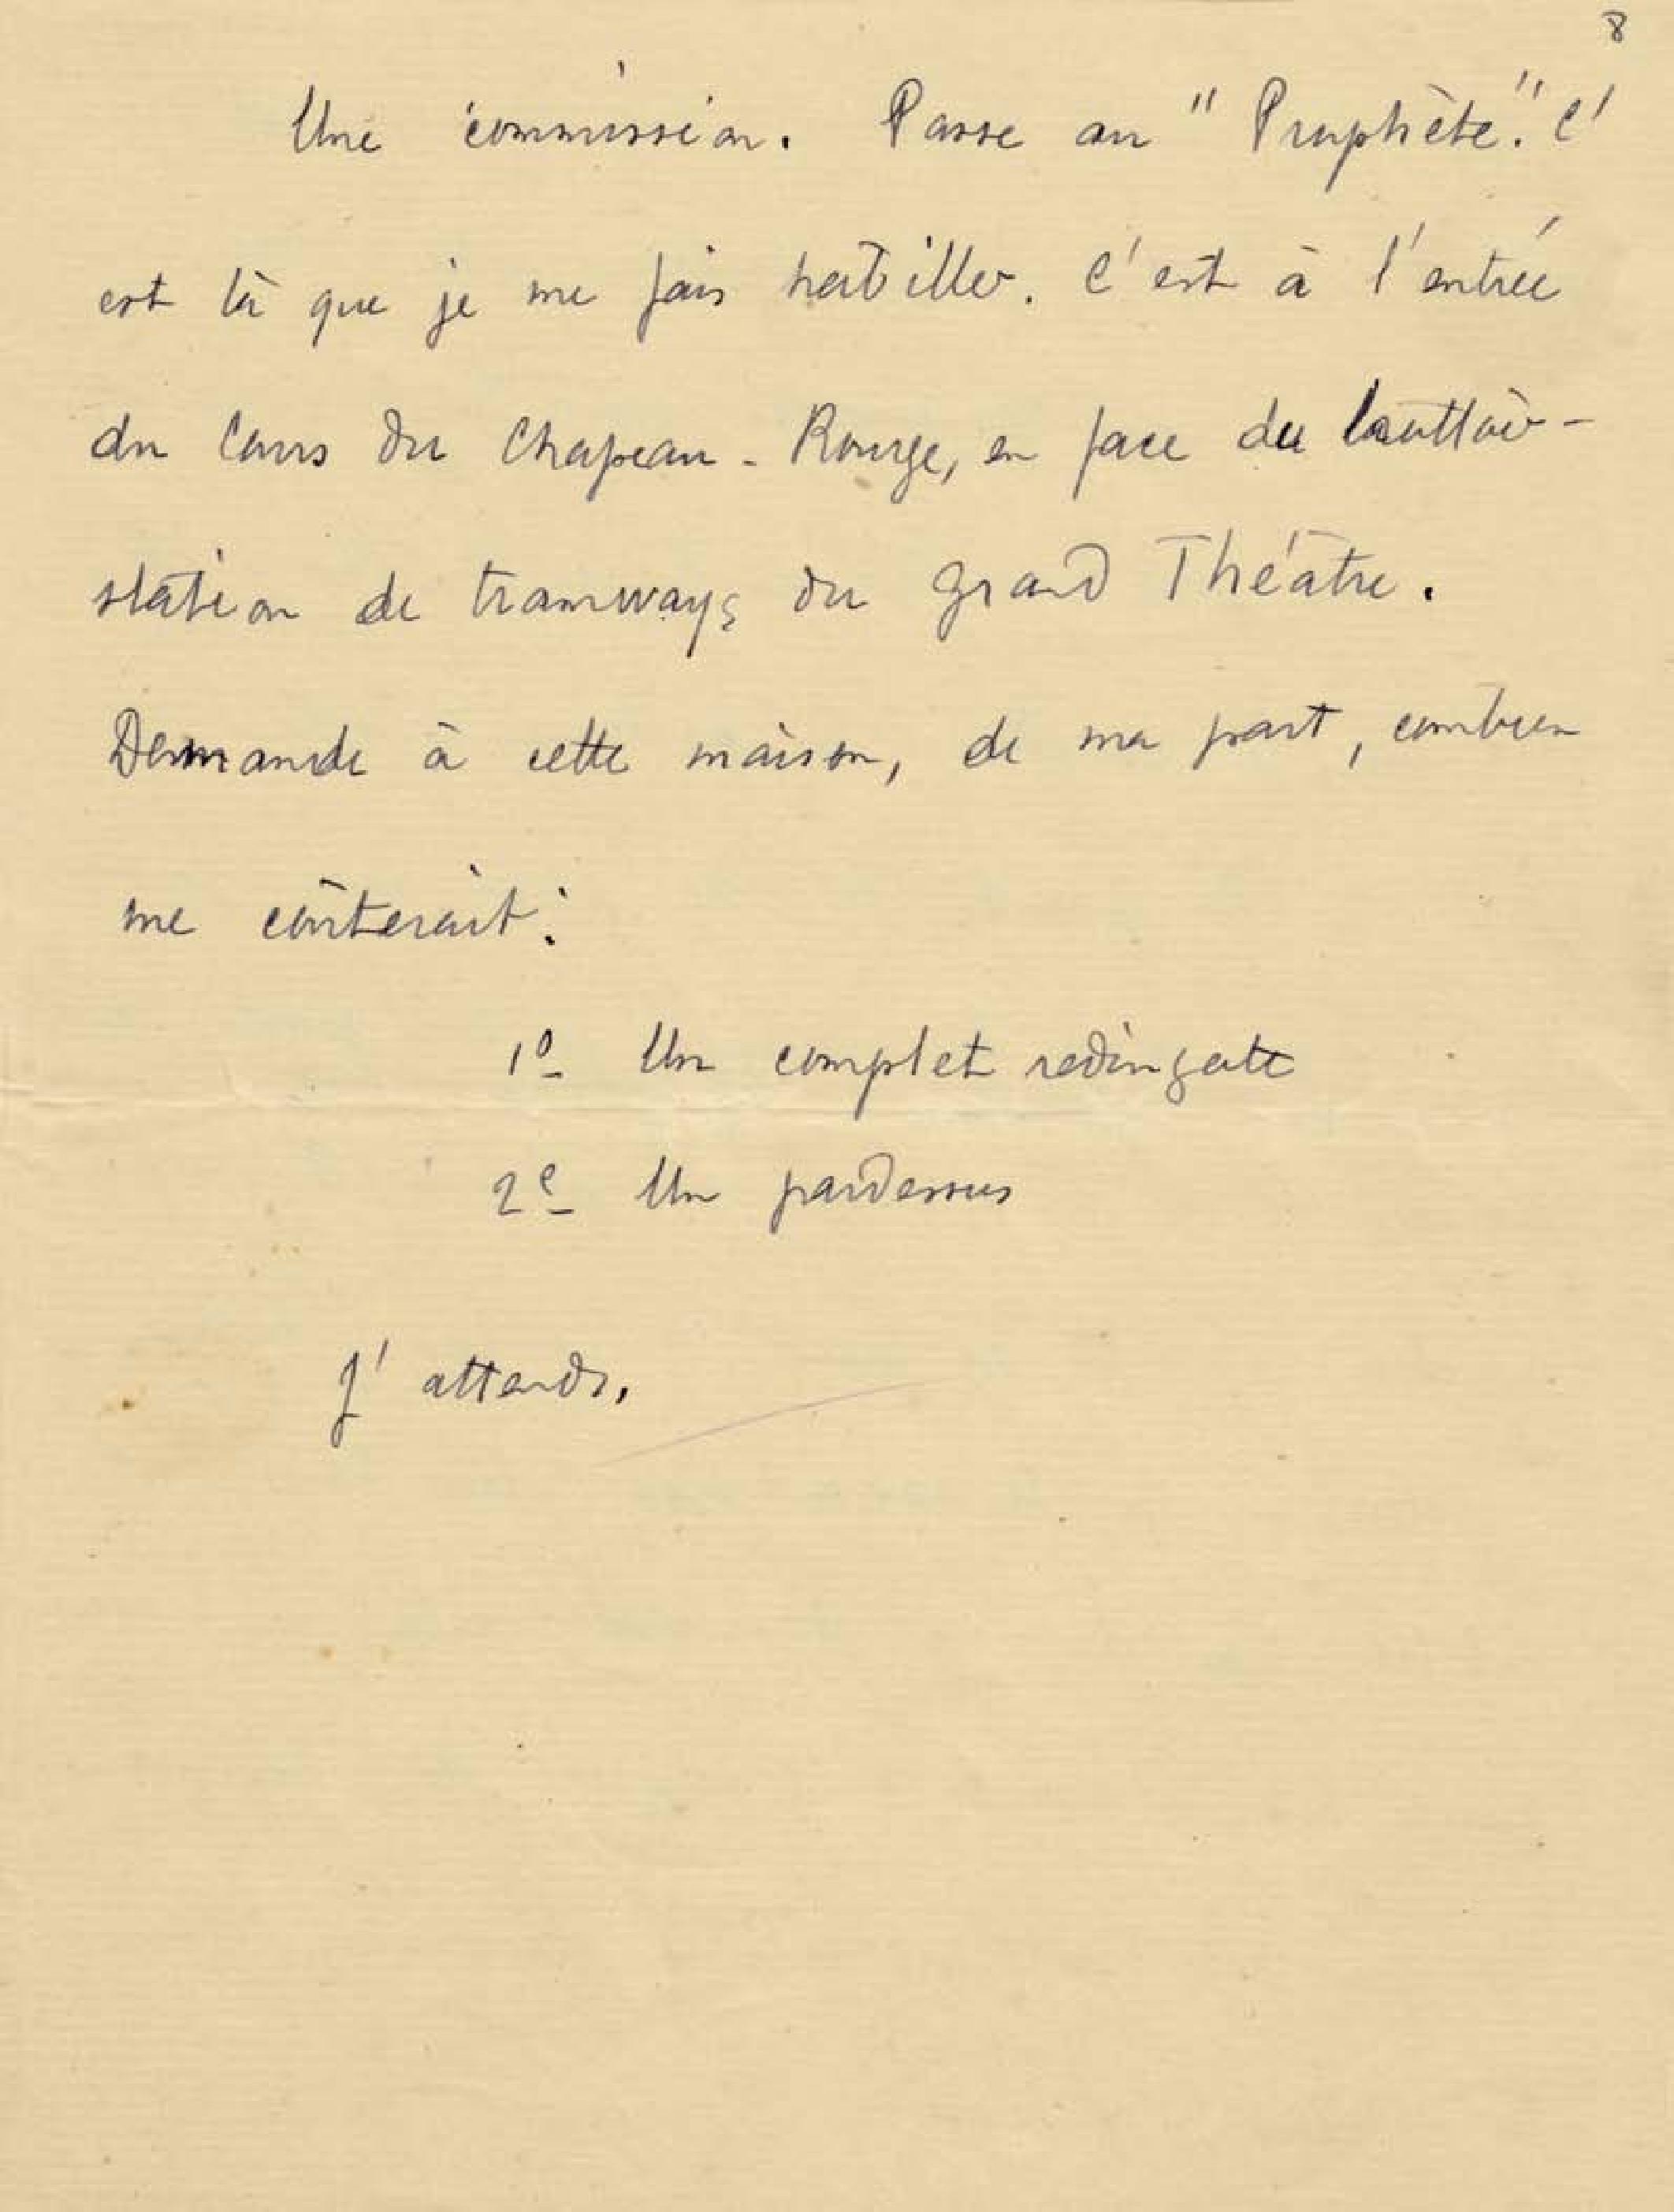 8
Une commission. Passe au "Prophète". C'
est là que je me fais habiller. C'est à l'entrée
du Cours du Chapeau-Rouge, en face du trottoir-
station de tramways du Grand Théâtre.
Demande à cette maison, de ma part, combien
me coûterait :
1º Un complet redingote
2º Un pardessus
J'attends.